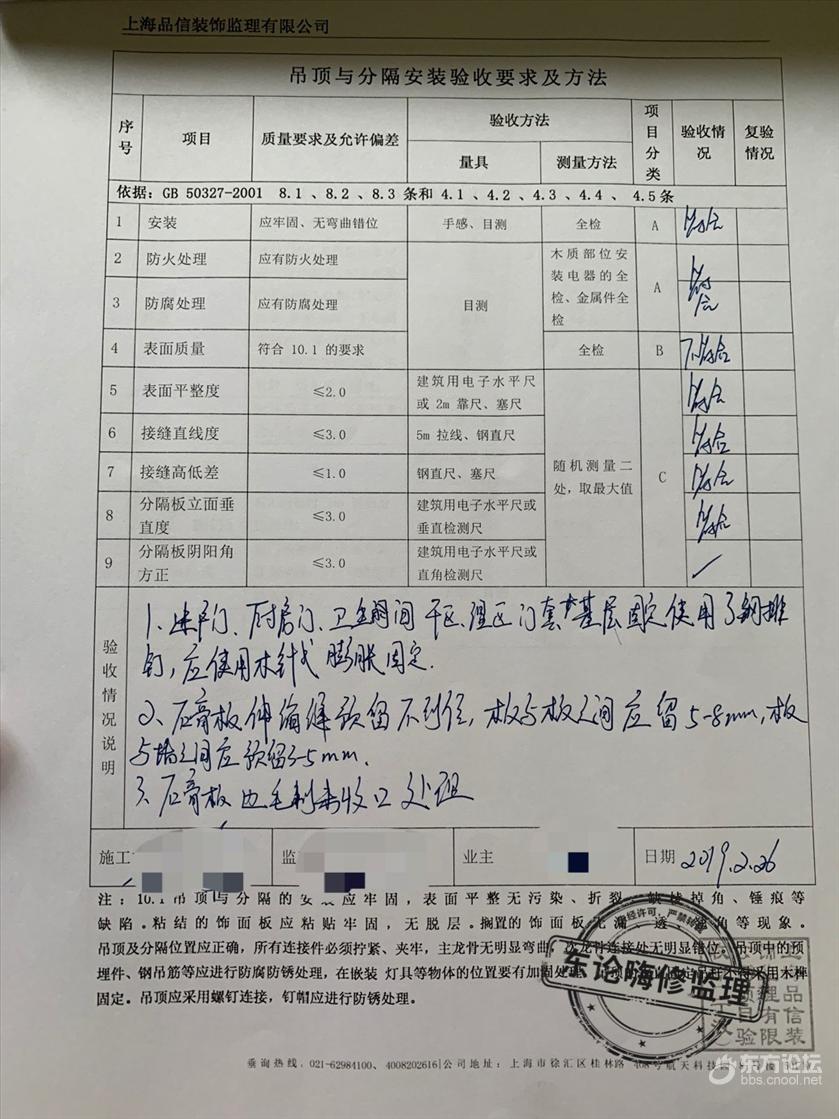 上海品信装饰监理有限公司
吊顶与分隔安装验收要求及方法
序号 项目 质量要求及允许偏差 验收方法 项目分类 验收情况 复验情况
量具 测量方法
依据：GB 50327-2001 8.1、8.2、8.3 条和 4.1、4.2、4.3、4.4、 4.5 条
1 安装 应牢固、无弯曲错位 手感、目测 全检 A 符合
2 防火处理 应有防火处理 目测 木质部位安装电器的全检、金属件全检 A 符合
3 防腐处理 应有防腐处理
4 表面质量 符合 10.1 的要求 全检 B 不符合
5 表面平整度 ≤2.0 建筑用电子水平尺或 2m 靠尺、塞尺 随机测量二处，取最大值 C 符合
6 接缝直线度 ≤3.0 5m 拉线、钢直尺 符合
7 接缝高低差 ≤1.0 钢直尺、塞尺 符合
8 分隔板立面垂直度 ≤3.0 建筑用电子水平尺或垂直检测尺 符合
9 分隔板阴阳角方正 ≤3.0 建筑用电子水平尺或直角检测尺 ✓
验收情况说明
1、进户门、厨房门、卫生间干区、湿区门套基层固定使用了钢排
钉，应使用木针式膨胀固定.
2、石膏板伸缩缝预留不到位，板与板之间应留5-8mm，板
与墙之间应预留3-5mm.
3、石膏板边毛刺未收口处理
施工 监 业主 日期 2019.2.26
注：10.1 吊顶与分隔的安装应牢固，表面平整无污染、折裂、缺棱掉角、锤痕等
缺陷。粘结的饰面板应粘贴牢固，无脱层。搁置的饰面板无漏、透、角等现象。
吊顶及分隔位置应正确，所有连接件必须拧紧、夹牢，主龙骨无明显弯曲，次龙骨连接处无明显错位。吊顶中的预
埋件、钢吊筋等应进行防腐防锈处理，在嵌装 灯具等物体的位置要有加固处理，不得采用木榫
固定。吊顶应采用螺钉连接，钉帽应进行防锈处理。
经许可，严禁转载
车论嗨修监理
垂询热线：021-62984100、4008202616|公司地址：上海市徐汇区桂林路 408号航天科技
东方论坛
bbs.cnool.net